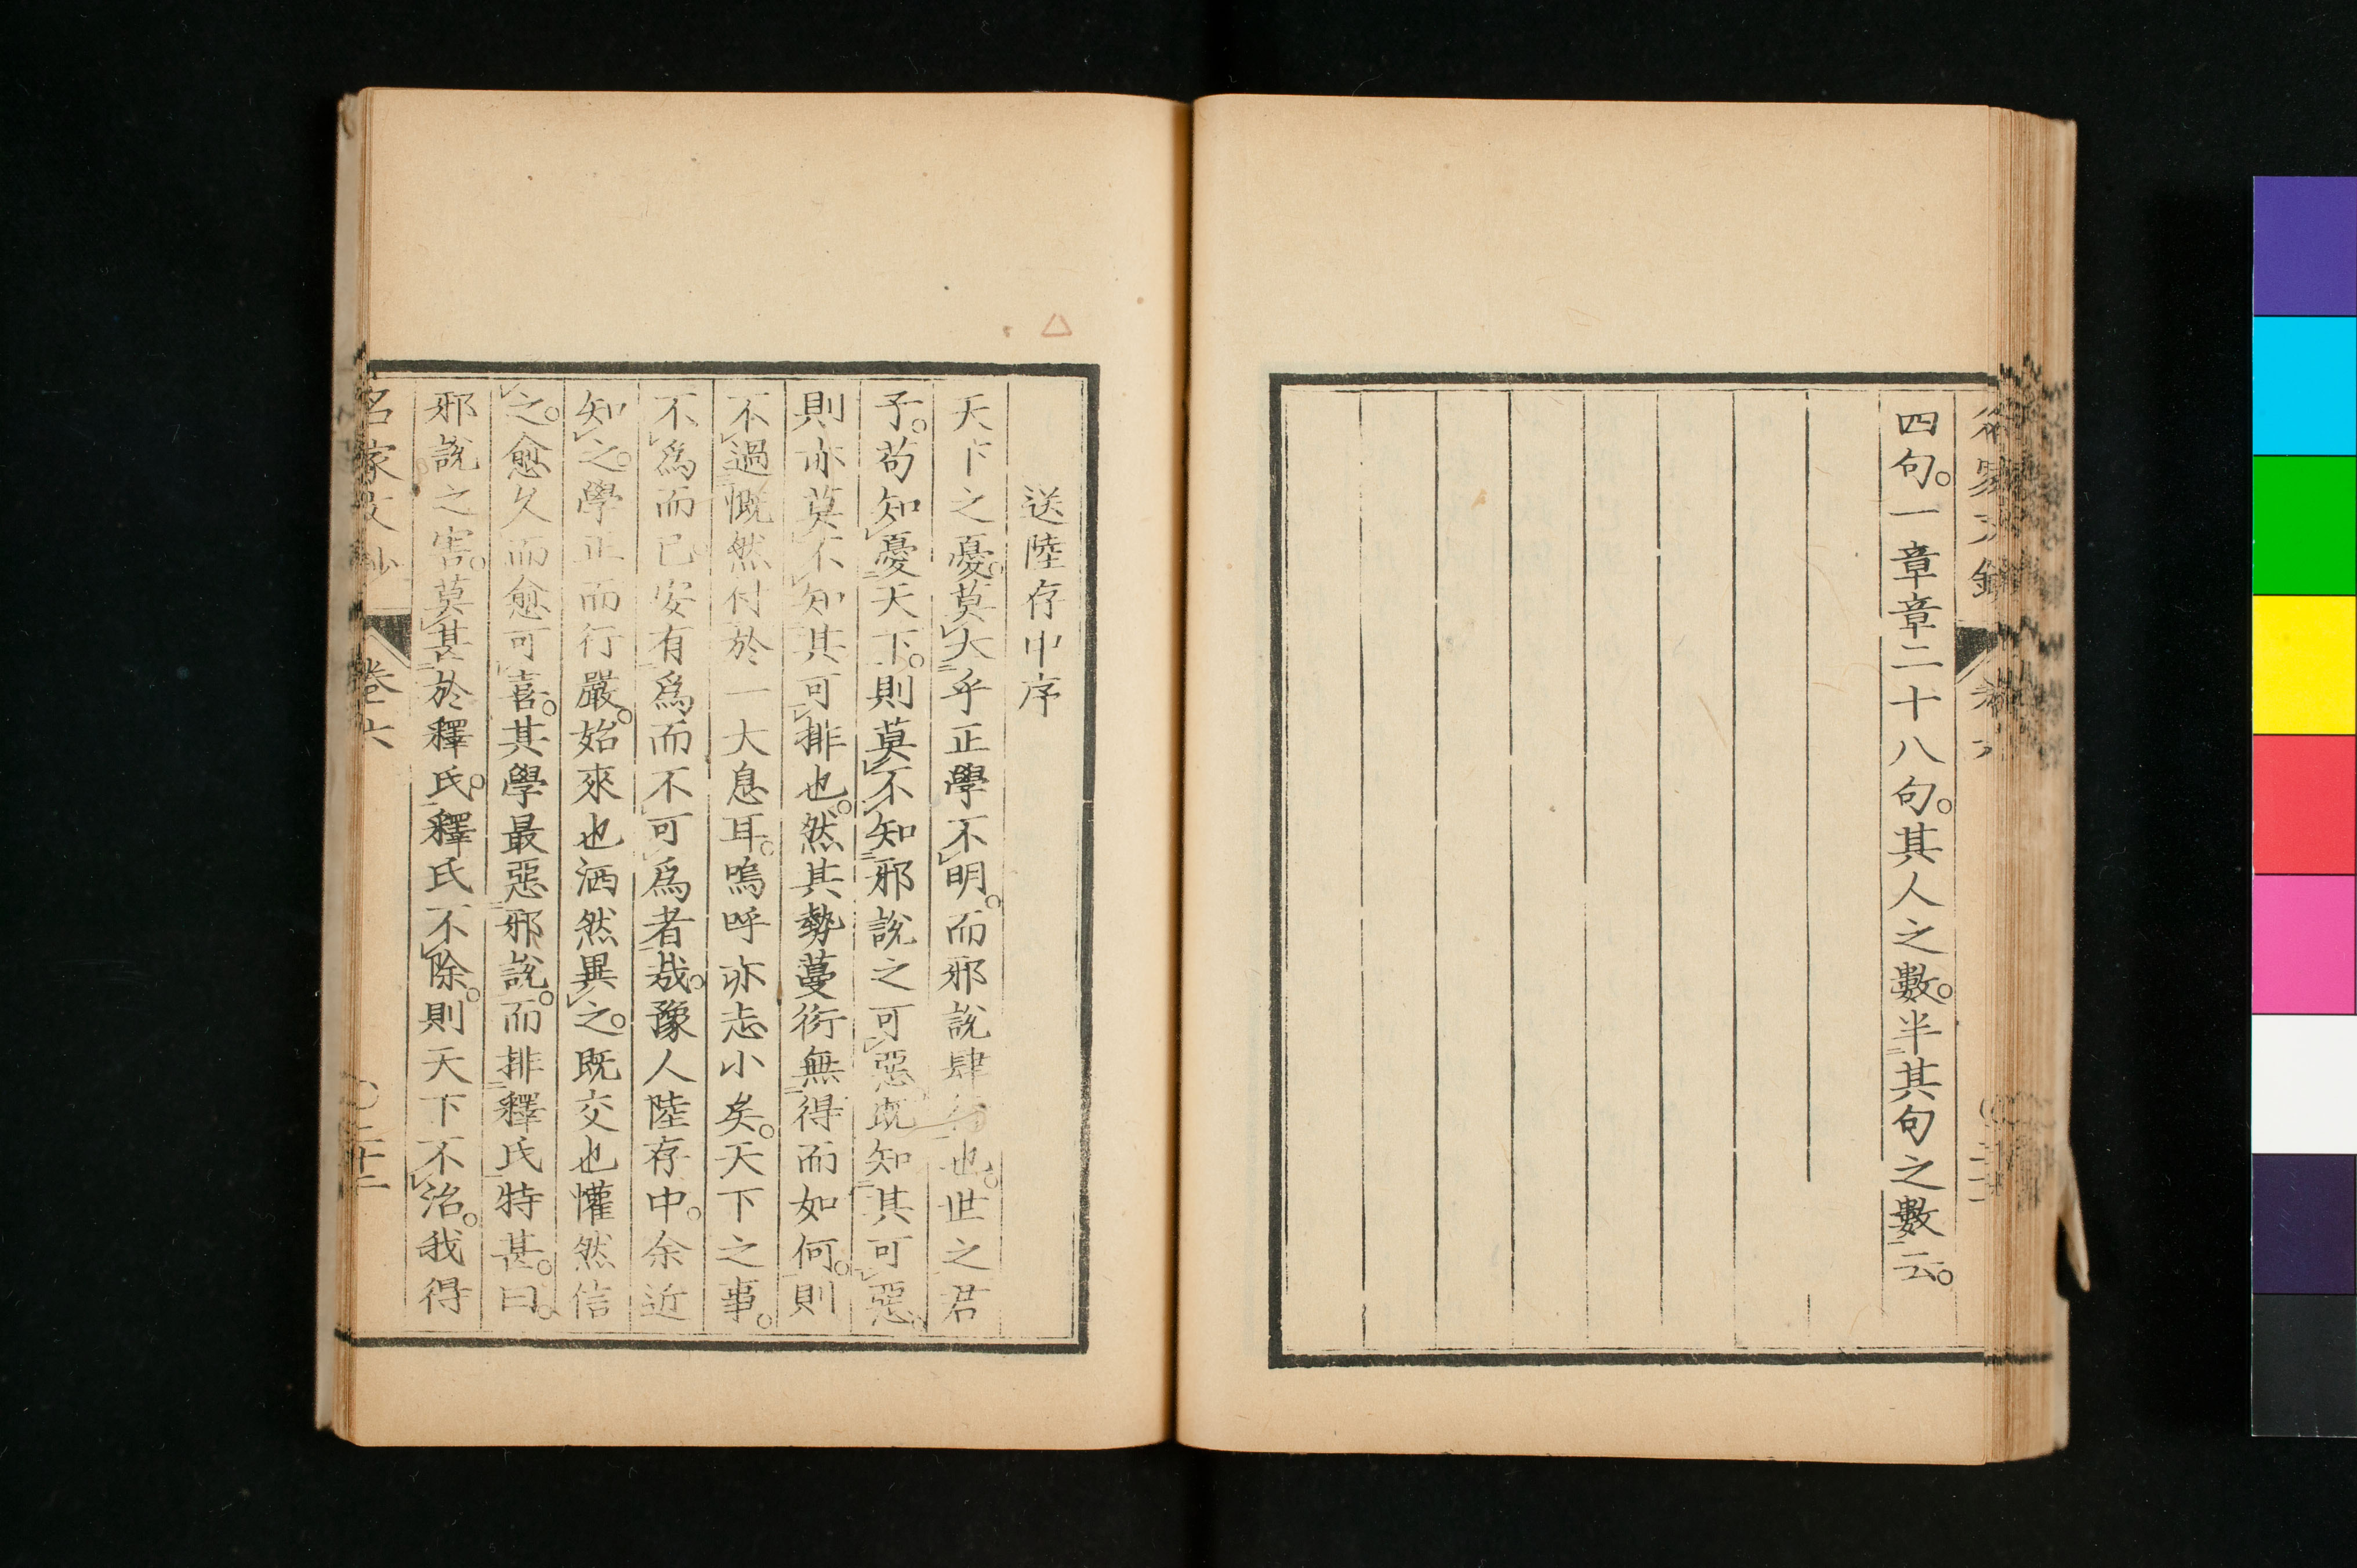 四句。一章章二十八句。其人之數。半其句之數云。
送陸存中序
天下之憂。莫大乎正學不明。而邪說肆行也。世之君
子。苟知憂天下。則莫不知邪說之可惡。既知其可惡。
則亦莫不知其可排也。然其勢蔓衍無得而如何。則
不過慨然付於一大息耳。嗚呼亦志小矣。天下之事。
不爲而已。安有爲而不可爲者哉。豫人陸存中。余近
知之。學正而行嚴。始來也洒然異之。既交也懽然信
之。愈久而愈可喜。其學最惡邪說。而排釋氏特甚。曰。
邪說之害。莫甚於釋氏。釋氏不除。則天下不治。我得
名家文抄 卷六 〇二十二